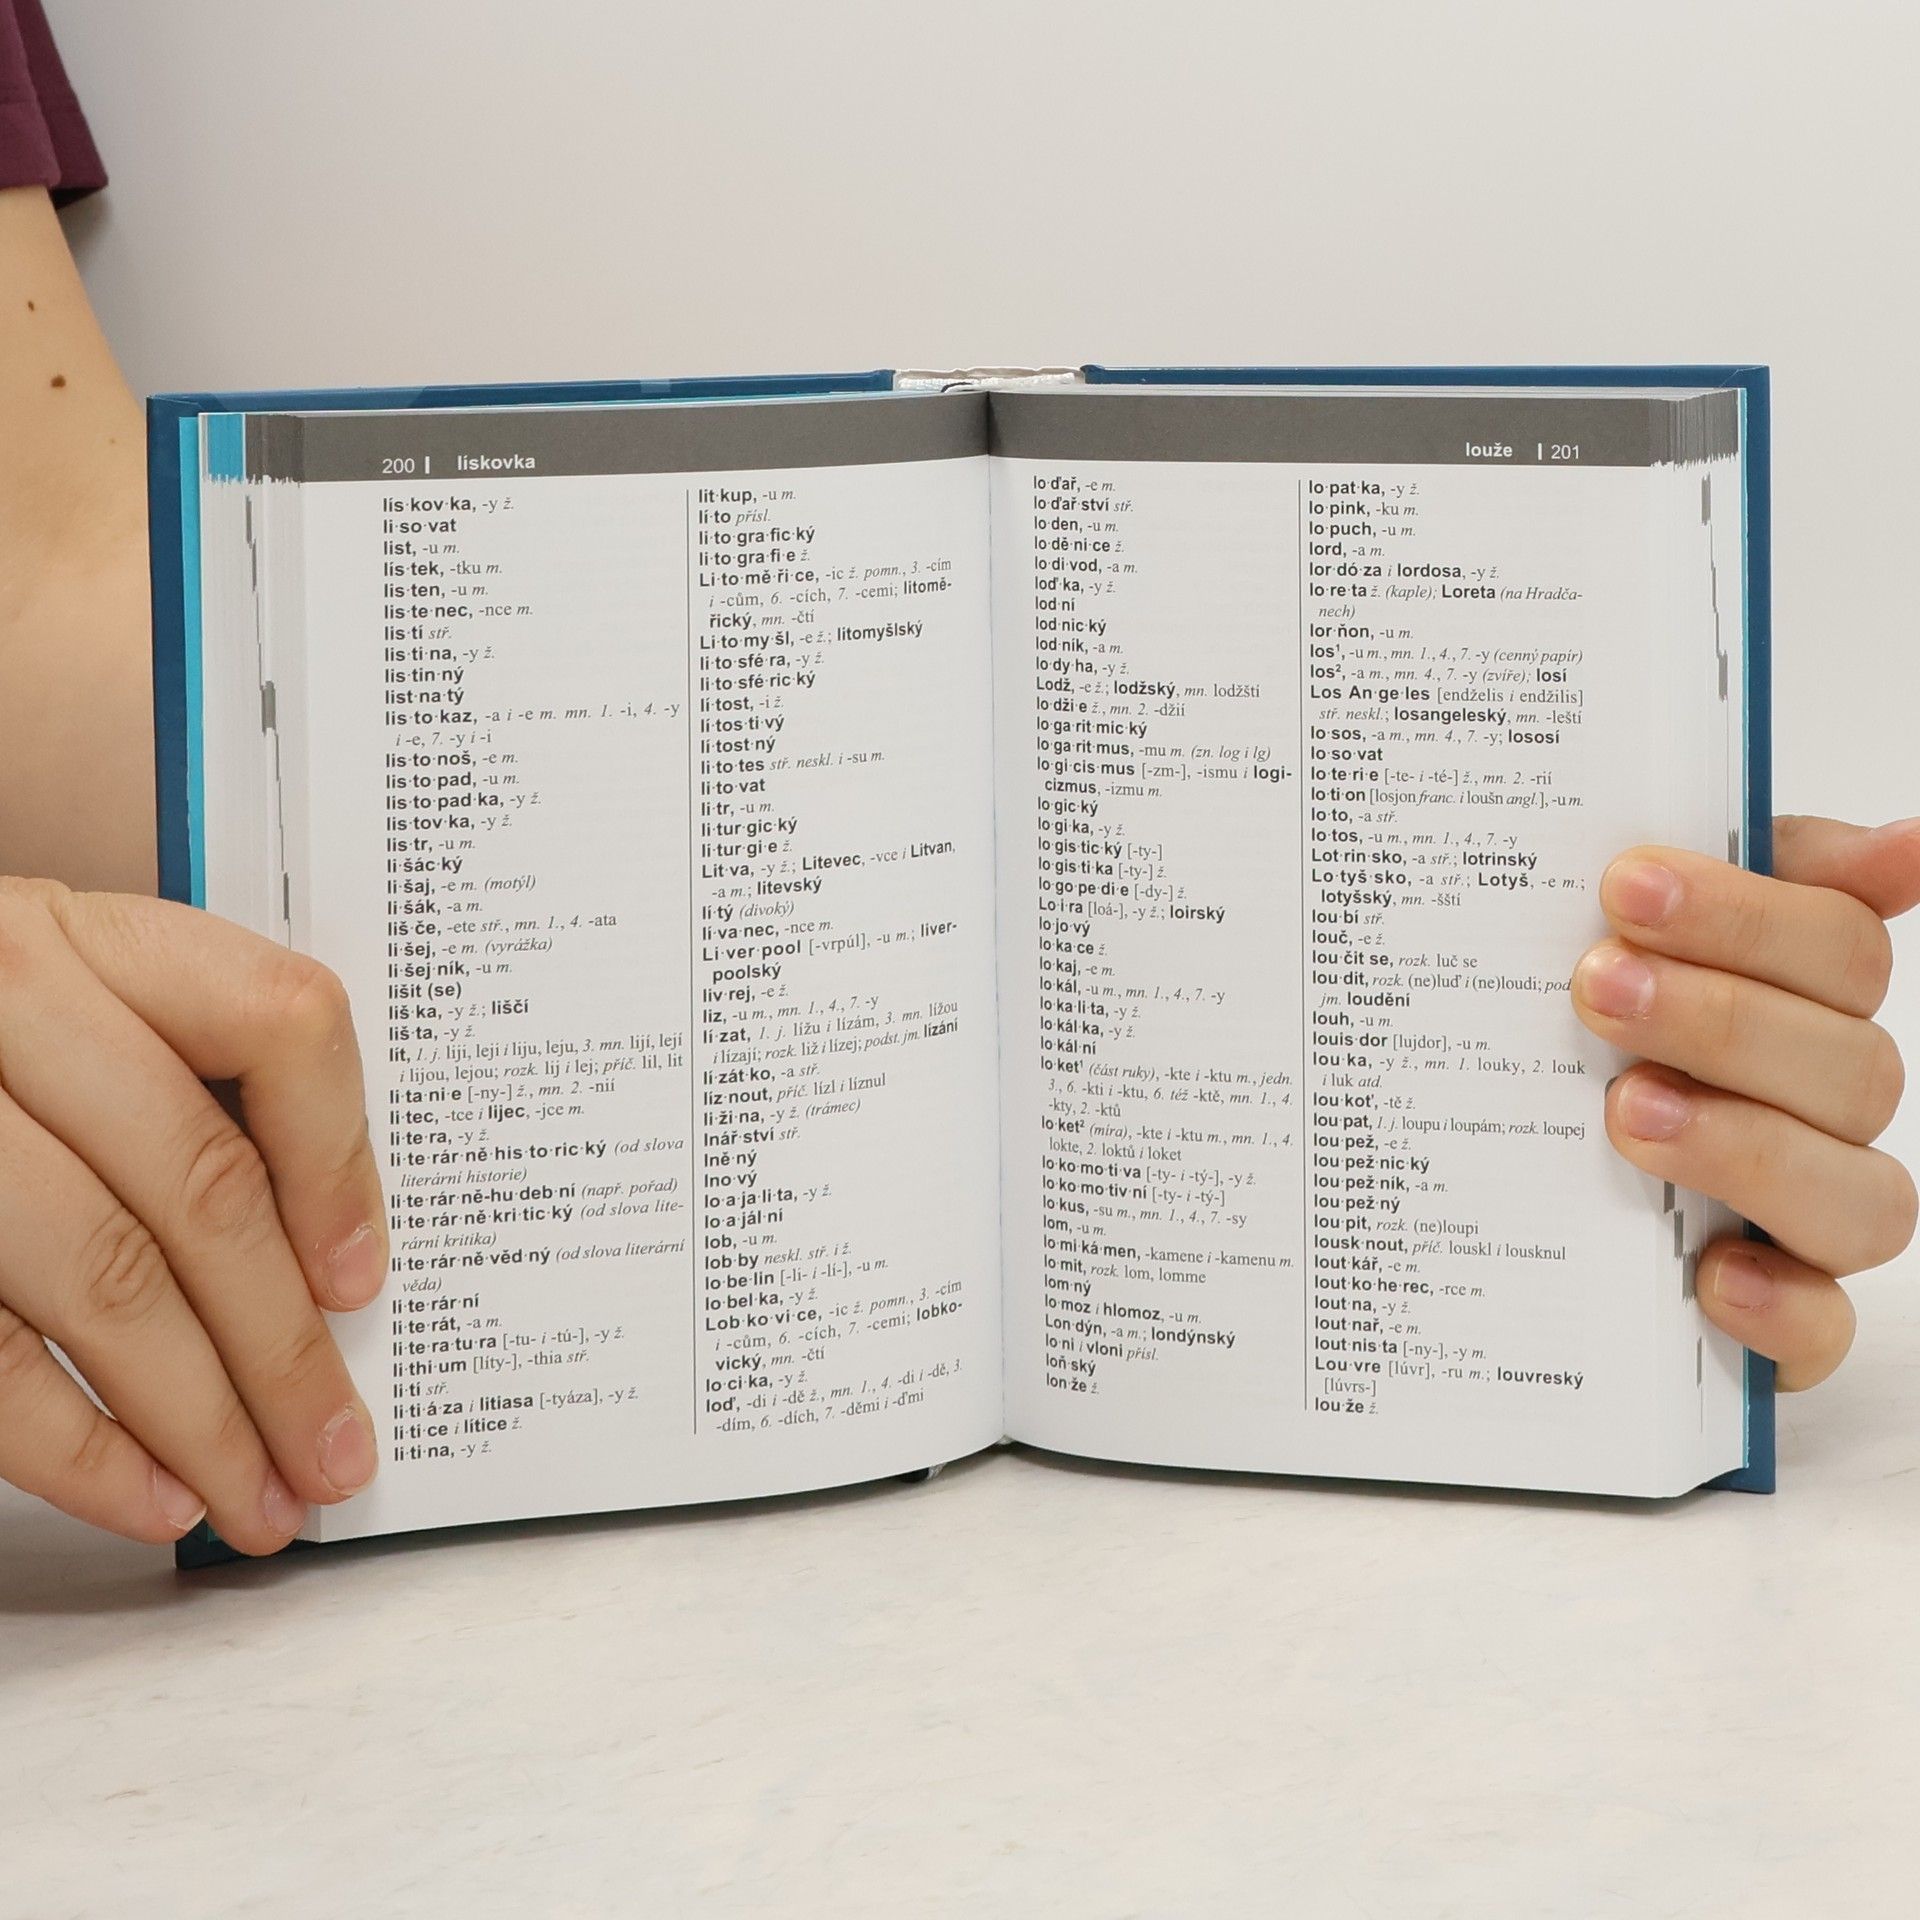 200 | lískovka
lís·kov·ka, -y ž.
li·so·vat
list, -u m.
lís·tek, -tku m.
lis·ten, -u m.
lis·te·nec, -nce m.
lis·tí stř.
lis·ti·na, -y ž.
lis·tin·ný
list·na·tý
lis·to·kaz, -a i -e m. mn. 1. -i, 4. -y
i -e, 7. -y i -i
lis·to·noš, -e m.
lis·to·pad, -u m.
lis·to·pad·ka, -y ž.
lis·tov·ka, -y ž.
lis·tr, -u m.
li·šác·ký
li·šaj, -e m. (motýl)
li·šák, -a m.
liš·če, -ete stř., mn. 1., 4. -ata
li·šej, -e m. (vyrážka)
li·šej·ník, -u m.
lišit (se)
liš·ka, -y ž.; liščí
liš·ta, -y ž.
lít, 1. j. liji, leji i liju, leju, 3. mn. lijí, lejí
i lijou, lejou; rozk. lij i lej; příč. lil, lit
li·ta·ni·e [-ny-] ž., mn. 2. -nií
li·tec, -tce i lijec, -jce m.
li·te·ra, -y ž.
li·te·rár·ně·his·to·ric·ký (od slova
literární historie)
li·te·rár·ně-hu·deb·ní (např. pořad)
li·te·rár·ně·kri·tic·ký (od slova lite-
rární kritika)
li·te·rár·ně·věd·ný (od slova literární
věda)
li·te·rár·ní
li·te·rát, -a m.
li·te·ra·tu·ra [-tu- i -tú-], -y ž.
li·thi·um [lity-], -thia stř.
li·tí stř.
li·ti·á·za i litiasa [-tyáza], -y ž.
li·ti·ce i lítice ž.
li·ti·na, -y ž.
lit·kup, -u m.
lí·to přísl.
li·to·gra·fic·ký
li·to·gra·fi·e ž.
Li·to·mě·ři·ce, -ic ž. pomn., 3. -cím
i -cům, 6. -cích, 7. -cemi; litomě-
řický, mn. -čtí
Li·to·my·šl, -e ž.; litomyšlský
li·to·sfé·ra, -y ž.
li·to·sfé·ric·ký
lí·tost, -i ž.
lí·tos·ti·vý
lí·tost·ný
li·to·tes stř. neskl. i -su m.
li·to·vat
li·tr, -u m.
li·tur·gic·ký
li·tur·gi·e ž.
Lit·va, -y ž.; Litevec, -vce i Litvan,
-a m.; litevský
lí·tý (divoký)
lí·va·nec, -nce m.
Li·ver·pool [-vrpúl], -u m.; liver-
poolský
liv·rej, -e ž.
liz, -u m., mn. 1., 4., 7. -y
lí·zat, 1. j. lížu i lízám, 3. mn. lížou
i lízají; rozk. liž i lízej; podst. jm. lízání
lí·zát·ko, -a stř.
líz·nout, příč. lízl i líznul
li·ži·na, -y ž. (trámec)
lnář·ství stř.
lně·ný
lno·vý
lo·a·ja·li·ta, -y ž.
lo·a·jál·ní
lob, -u m.
lob·by neskl. stř. i ž.
lo·be·lin [-li- i -lí-], -u m.
lo·bel·ka, -y ž.
Lob·ko·vi·ce, -ic ž. pomn., 3. -cím
i -cům, 6. -cích, 7. -cemi; lobko-
vický, mn. -čtí
lo·ci·ka, -y ž.
loď, -di i -dě ž., mn. 1., 4. -di i -dě, 3.
-dím, 6. -dích, 7. -děmi i -ďmi
louže | 201
lo·ďař, -e m.
lo·ďař·ství stř.
lo·den, -u m.
lo·dě·ni·ce ž.
lo·di·vod, -a m.
loď·ka, -y ž.
lod·ní
lod·nic·ký
lod·ník, -a m.
lo·dy·ha, -y ž.
Lodž, -e ž.; lodžský, mn. lodžští
lo·dži·e ž., mn. 2. -džií
lo·ga·rit·mic·ký
lo·ga·rit·mus, -mu m. (zn. log i lg)
lo·gi·cis·mus [-zm-], -ismu i logi-
cizmus, -izmu m.
lo·gic·ký
lo·gi·ka, -y ž.
lo·gis·tic·ký [-ty-]
lo·gis·ti·ka [-ty-] ž.
lo·go·pe·di·e [-dy-] ž.
Lo·i·ra [loá-], -y ž.; loirský
lo·jo·vý
lo·ka·ce ž.
lo·kaj, -e m.
lo·kál, -u m., mn. 1., 4., 7. -y
lo·ka·li·ta, -y ž.
lo·kál·ka, -y ž.
lo·kál·ní
lo·ket¹ (část ruky), -kte i -ktu m., jedn.
3., 6. -kti i -ktu, 6. též -ktě, mn. 1., 4.
-kty, 2. -ktů
lo·ket² (míra), -kte i -ktu m., mn. 1., 4.
lokte, 2. loktů i loket
lo·ko·mo·ti·va [-ty- i -tý-], -y ž.
lo·ko·mo·tiv·ní [-ty- i -tý-]
lo·kus, -su m., mn. 1., 4., 7. -sy
lom, -u m.
lo·mi·ká·men, -kamene i -kamenu m.
lo·mit, rozk. lom, lomme
lom·ný
lo·moz i hlomoz, -u m.
Lon·dýn, -a m.; londýnský
lo·ni i vloni přísl.
loň·ský
lon·že ž.
lo·pat·ka, -y ž.
lo·pink, -ku m.
lo·puch, -u m.
lord, -a m.
lor·dó·za i lordosa, -y ž.
lo·re·ta ž. (kaple); Loreta (na Hradča-
nech)
lor·ňon, -u m.
los¹, -u m., mn. 1., 4., 7. -y (cenný papír)
los², -a m., mn. 4., 7. -y (zvíře); losí
Los An·ge·les [endželis i endžilis]
stř. neskl.; losangeleský, mn. -leští
lo·sos, -a m., mn. 4., 7. -y; lososí
lo·so·vat
lo·te·ri·e [-te- i -té-] ž., mn. 2. -rií
lo·ti·on [losjon franc. i loušn angl.], -u m.
lo·to, -a stř.
lo·tos, -u m., mn. 1., 4., 7. -y
Lot·rin·sko, -a stř.; lotrinský
Lo·tyš·sko, -a stř.; Lotyš, -e m.;
lotyšský, mn. -šští
lou·bí stř.
louč, -e ž.
lou·čit se, rozk. luč se
lou·dit, rozk. (ne)luď i (ne)loudi; pod
jm. loudění
louh, -u m.
louis·dor [lujdor], -u m.
lou·ka, -y ž., mn. 1. louky, 2. louk
i luk atd.
lou·koť, -tě ž.
lou·pat, 1. j. loupu i loupám; rozk. loupej
lou·pež, -e ž.
lou·pež·nic·ký
lou·pež·ník, -a m.
lou·pež·ný
lou·pit, rozk. (ne)loupi
lousk·nout, příč. louskl i lousknul
lout·kář, -e m.
lout·ko·he·rec, -rce m.
lout·na, -y ž.
lout·nař, -e m.
lout·nis·ta [-ny-], -y m.
Lou·vre [lúvr], -ru m.; louvreský
[lúvrs-]
lou·že ž.